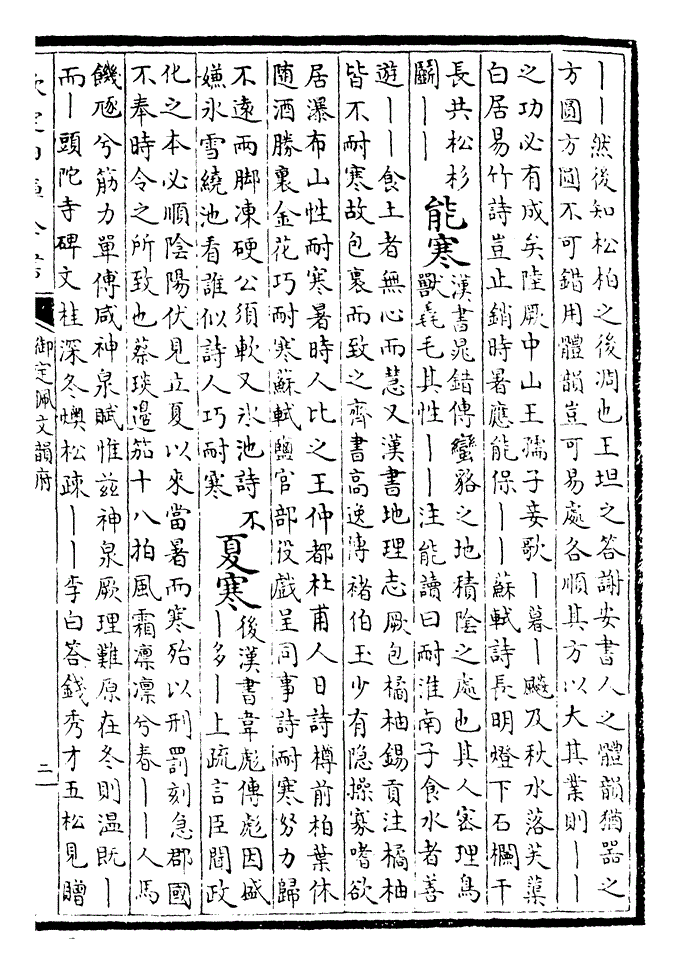 ——然後知松柏之後凋也王坦之答謝安書人之體韻猶器之
方圓方圓不可錯用體韻豈可易處各順其方以大其業則——
之功必有成矣陸厥中山王孺子妾歌—暮—飈及秋水落芙蕖
白居易竹詩豈止銷時暑應能保——蘇軾詩長明燈下石欄干
長共松杉
鬭——
能寒
漢書晁錯傳蠻貉之地積陰之處也其人密理鳥
獸毳毛其性——注能讀曰耐淮南子食水者善
遊——食土者無心而慧又漢書地理志厥包橘柚錫貢注橘柚
皆不耐寒故包裹而致之齊書高逸傳褚伯玉少有隱操寡嗜欲
居瀑布山性耐寒暑時人比之王仲都杜甫人日詩樽前柏葉休
随酒勝裏金花巧耐寒蘇軾鹽官部役戲呈同事詩耐寒努力歸
不遠兩脚凍硬公須軟又氷池詩不
嫌氷雪繞池看誰似詩人巧耐寒
夏寒
後漢書韋彪傳彪因盛
—多—上疏言臣聞政
化之本必順陰陽伏見立夏以來當暑而寒殆以刑罰刻急郡國
不奉時令之所致也蔡琰邊笳十八拍風霜凛凛兮春——人馬
饑豗兮筋力單傅咸神泉賦惟兹神泉厥理難原在冬則温既—
而—頭陀寺碑文桂深冬燠松疎——李白答錢秀才五松見贈
欽定四庫全書
御定佩文韻府
二